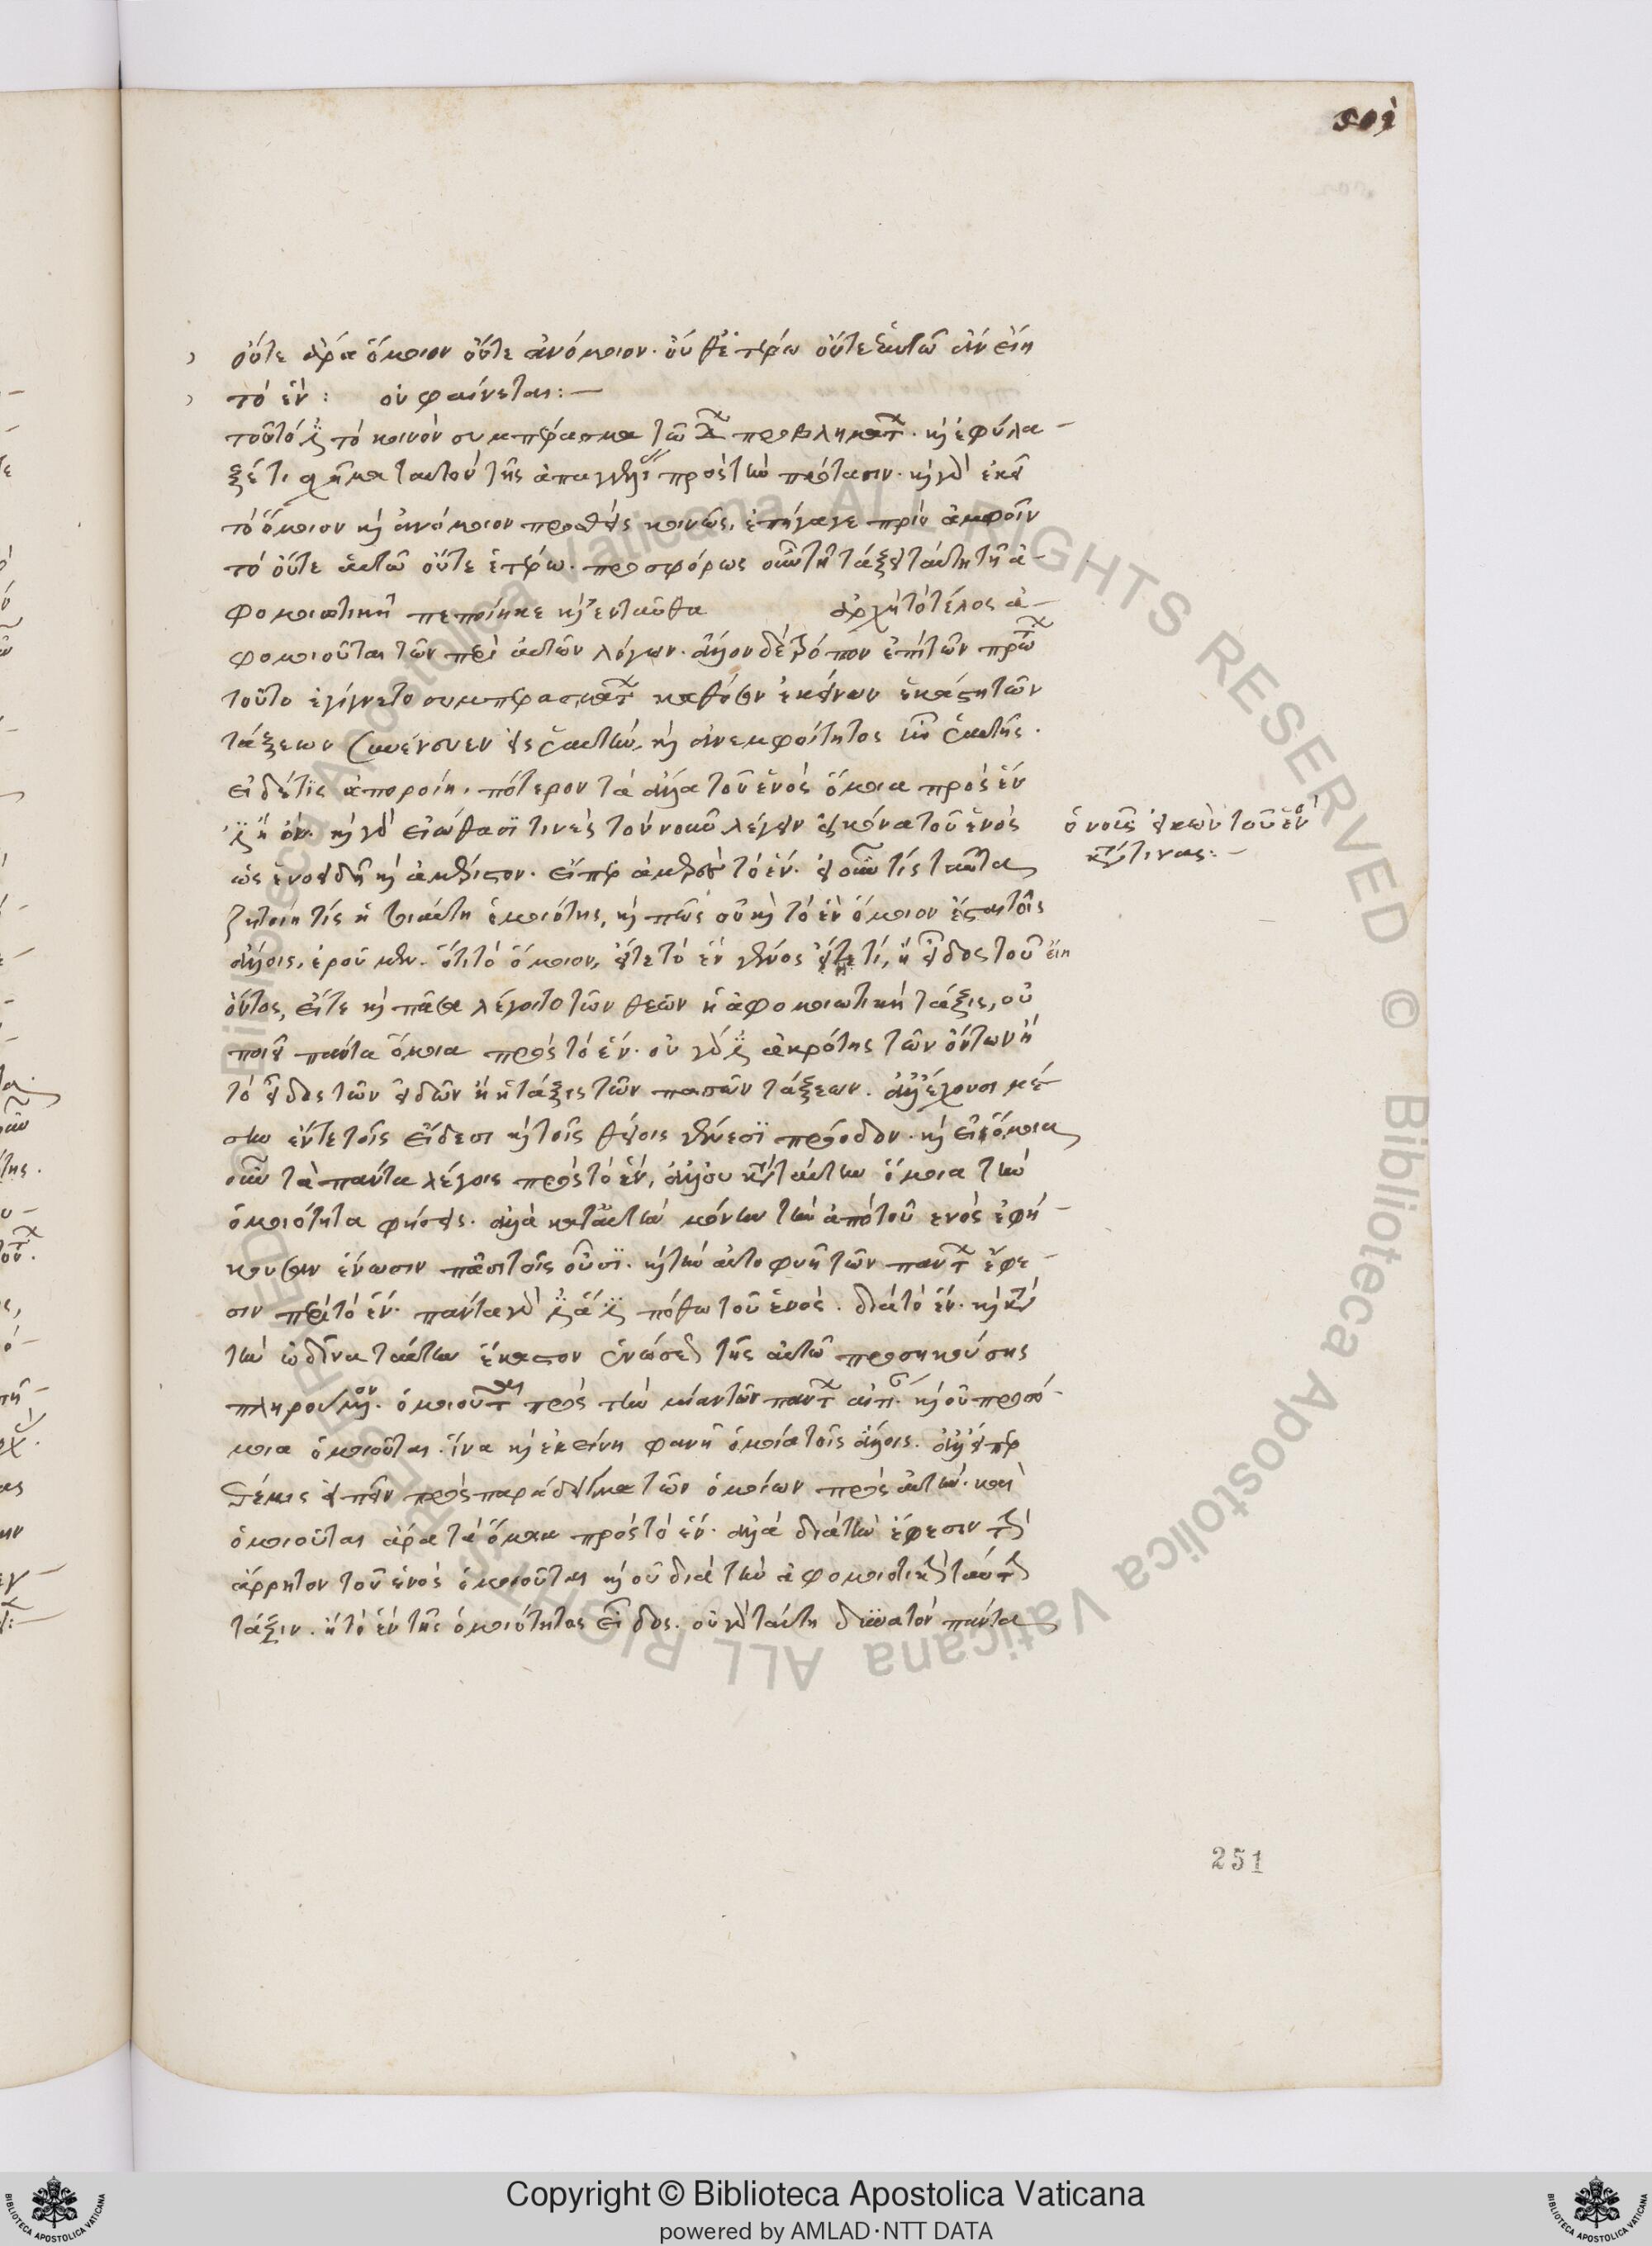 501
οὔτε ἄρα ὅμοιον οὔτε ἀνόμοιον. οὔθ' ἑτέρω οὔτε ἑαυτῶ ἂν εἴη
τὸ ἕν: οὐ φαίνεται:—
τοῦτό ἐστι τὸ κοινὸν συμπέρασμα τῶν προβλημάτων. καὶ ἐφύλα-
ξέ τι σχῆμα ταυτὸν τῆς ἀπαγγελίας πρὸς τὴν πρότασιν. καὶ γὰρ ἐκεῖ
τὸ ὅμοιον καὶ ἀνόμοιον προθεὶς κοινῶς, ἐπήγαγε περὶ ἀμφοῖν
τὸ οὔτε ἑαυτῶ οὔτε ἑτέρω. προσφόρως οὖν τῆ τάξει ταύτη τῆ ἀ-
φομοιωτικῆ πεποίηκε καὶ ἐνταῦθα ἀρχῆ τὸ τέλος ἀ-
φομοιοῦται τῶν περὶ αὐτῶν λόγων. ἄλλον δὲ τρόπον ἐπὶ τῶν πρώτων
τοῦτο ἐγίγνετο συμπερασμάτων καθόσον ἐκείνων ἑκάστη τῶν
τάξεων συνένευεν εἰς ἑαυτὴν, καὶ ἀνεκφοίτητος ἦν ἑαυτῆς.
εἰ δέ τις ἀποροίη, πότερον τὰ ἄλλα τοῦ ἑνὸς ὅμοια πρὸς ἕν
ἐστιν ἢ οὔ. καὶ γὰρ εἰώθασί τινες τὸν νοῦν λέγειν εἰκόνα τοῦ ἑνὸς
ὁ νοῦς εἰκὼν τοῦ ἑνὸς
κατά τινας:—
ὡς ἑνοειδῆ καὶ ἀμέριστον. εἴπερ ἀμερὲς τὸ ἕν. εἰ οὖν τις ταῦτα
ζητοίη τίς ἡ τοιαύτη ὁμοιότης, καὶ πῶς οὐ καὶ τὸ ἓν ὅμοιον ἔσται τοῖς
ἄλλοις, ἐροῦμεν. ὅτι τὸ ὅμοιον, εἴτε τὸ ἓν γένος εἴη τι, ἢ εἶδος τοῦ
ὄντος, εἴτε καὶ πᾶσα λέγοιτο τῶν θεῶν ἡ ἀφομοιωτικὴ τάξις, οὐ
ποιεῖ πάντα ὅμοια πρὸς τὸ ἕν. οὐ γάρ ἐστιν ἀκρότης τῶν ὄντων ἢ
τὸ εἶδος τῶν εἰδῶν ἢ ἡ τάξις τῶν πασῶν τάξεων. ἀλλ' ἔχουσι μέ-
σην ἔν τε τοῖς εἴδεσι καὶ τοῖς θείοις γένεσι πρόοδον. καὶ εἰ ὅμοια
οὖν τὰ πάντα λέγοις πρὸς τὸ ἕν, ἀλλ' οὐ κατὰ ταύτην ὅμοια τὴν
ὁμοιότητα φήσεις. ἀλλὰ κατ' αὐτὴν μόνην τὴν ἀπὸ τοῦ ἑνὸς ἐφή-
κουσαν ἕνωσιν πᾶσι τοῖς οὖσι. καὶ τὴν αὐτοφυῆ τῶν πάντων ἔφε-
σιν περὶ τὸ ἕν. πάντα γάρ ἐστιν ἅ ἐστι πόθω τοῦ ἑνὸς. διὰ τὸ ἕν. καὶ κατὰ
τὴν ὠδῖνα ταύτην ἕκαστον ἑνώσεως τῆς αὐτῶ προσηκούσης
πληρούμενον. ὁμοιοῦται πρὸς τὴν μίαν τῶν πάντων αἰτίαν. καὶ οὐ πρὸς ὅ-
μοια ὁμοιοῦται. ἵνα καὶ ἐκείνη φανῆ ὁμοία τοῖς ἄλλοις. ἀλλ' εἴπερ
θέμις εἰπεῖν πρὸς παράδειγμα τῶν ὁμοίων πρὸς αὐτήν. καὶ
ὁμοιοῦται ἄρα τὰ ὅμοια πρὸς τὸ ἕν. ἀλλὰ διὰ τὴν ἔφεσιν τὴν
ἄρρητον τοῦ ἑνὸς ὁμοιοῦται καὶ οὐ διὰ τὴν ἀφομοιωτικὴν ταύτην
τάξιν. ἢ τὸ ἓν τῆς ὁμοιότητος εἶδος. οὐ γὰρ ταύτη δυνατὸν πάντα
251